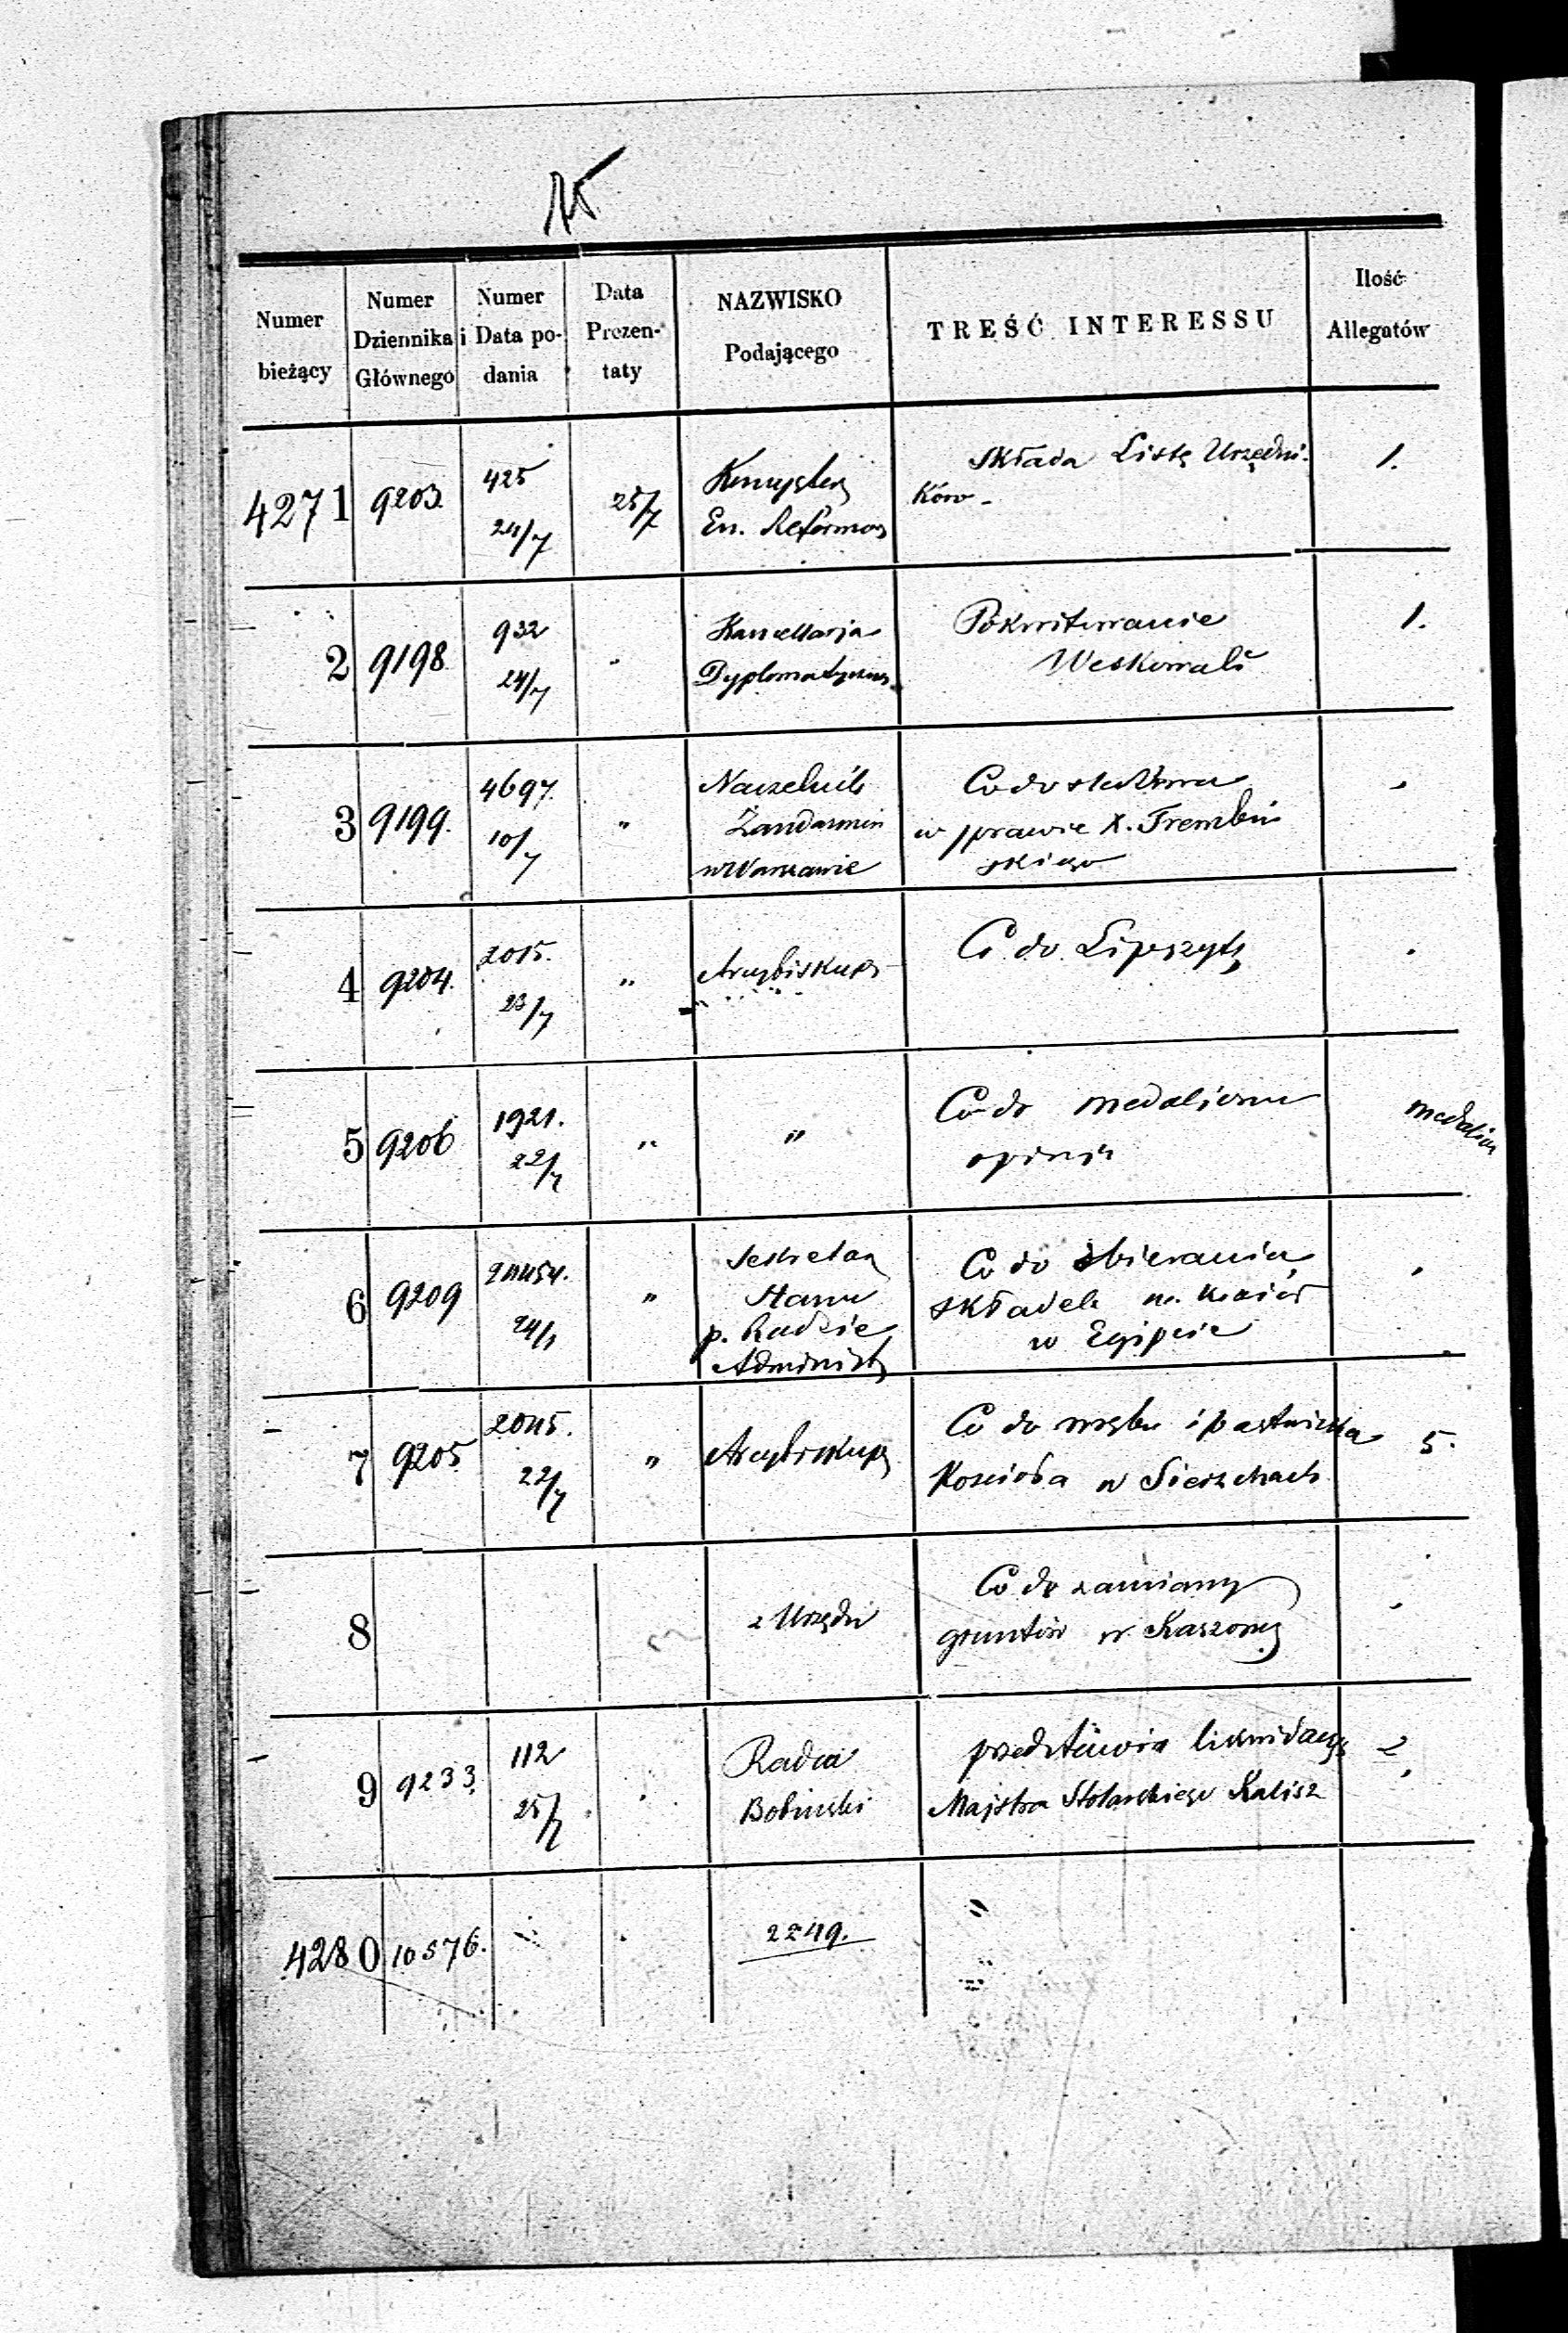 15
Numer bieżący
Numer Dziennika Głównego
Numer i Data podania
Data Prezentaty
NAZWISKO Podającego
TREŚĆ INTERESSU
Ilość Allegatów
4271 9203. 425 24/7 25/7
En. Reformow
Składa Listę Urzędni-
ków -
1.
2 9198. 932 24/7 "
Kancellarja
Dyplomatyczna
Pokwitowanie
1.
3 9199. 4697. 10/7 "
Naczelnik
Żandarmów
w Warszawie
Co do
w sprawie X. Trembiń
skiego
4 9204. 2015. 23/7 "
Arcybiskup
Co do
5 9206 1921. 22/7 " "
Co do medalionu
opinja
medalion
6 9209 24/7 "
Sekretarz
Stanu
p. Radzie
Administ
Co do zbierania
składek na kościół
w Egipcie
7 9205 2045. 22/7 "
Arcybiskup
Co do wrębu i pastwiska
Kościoła w
5.
8
z Urzędu
Co do zamiany
gruntów w
9 9233. 112 25/7
Radca
Bobinski
przedstawia likwidacyą
Majstra Stolarskiego Kalisz
2
4280 10576.
2249.